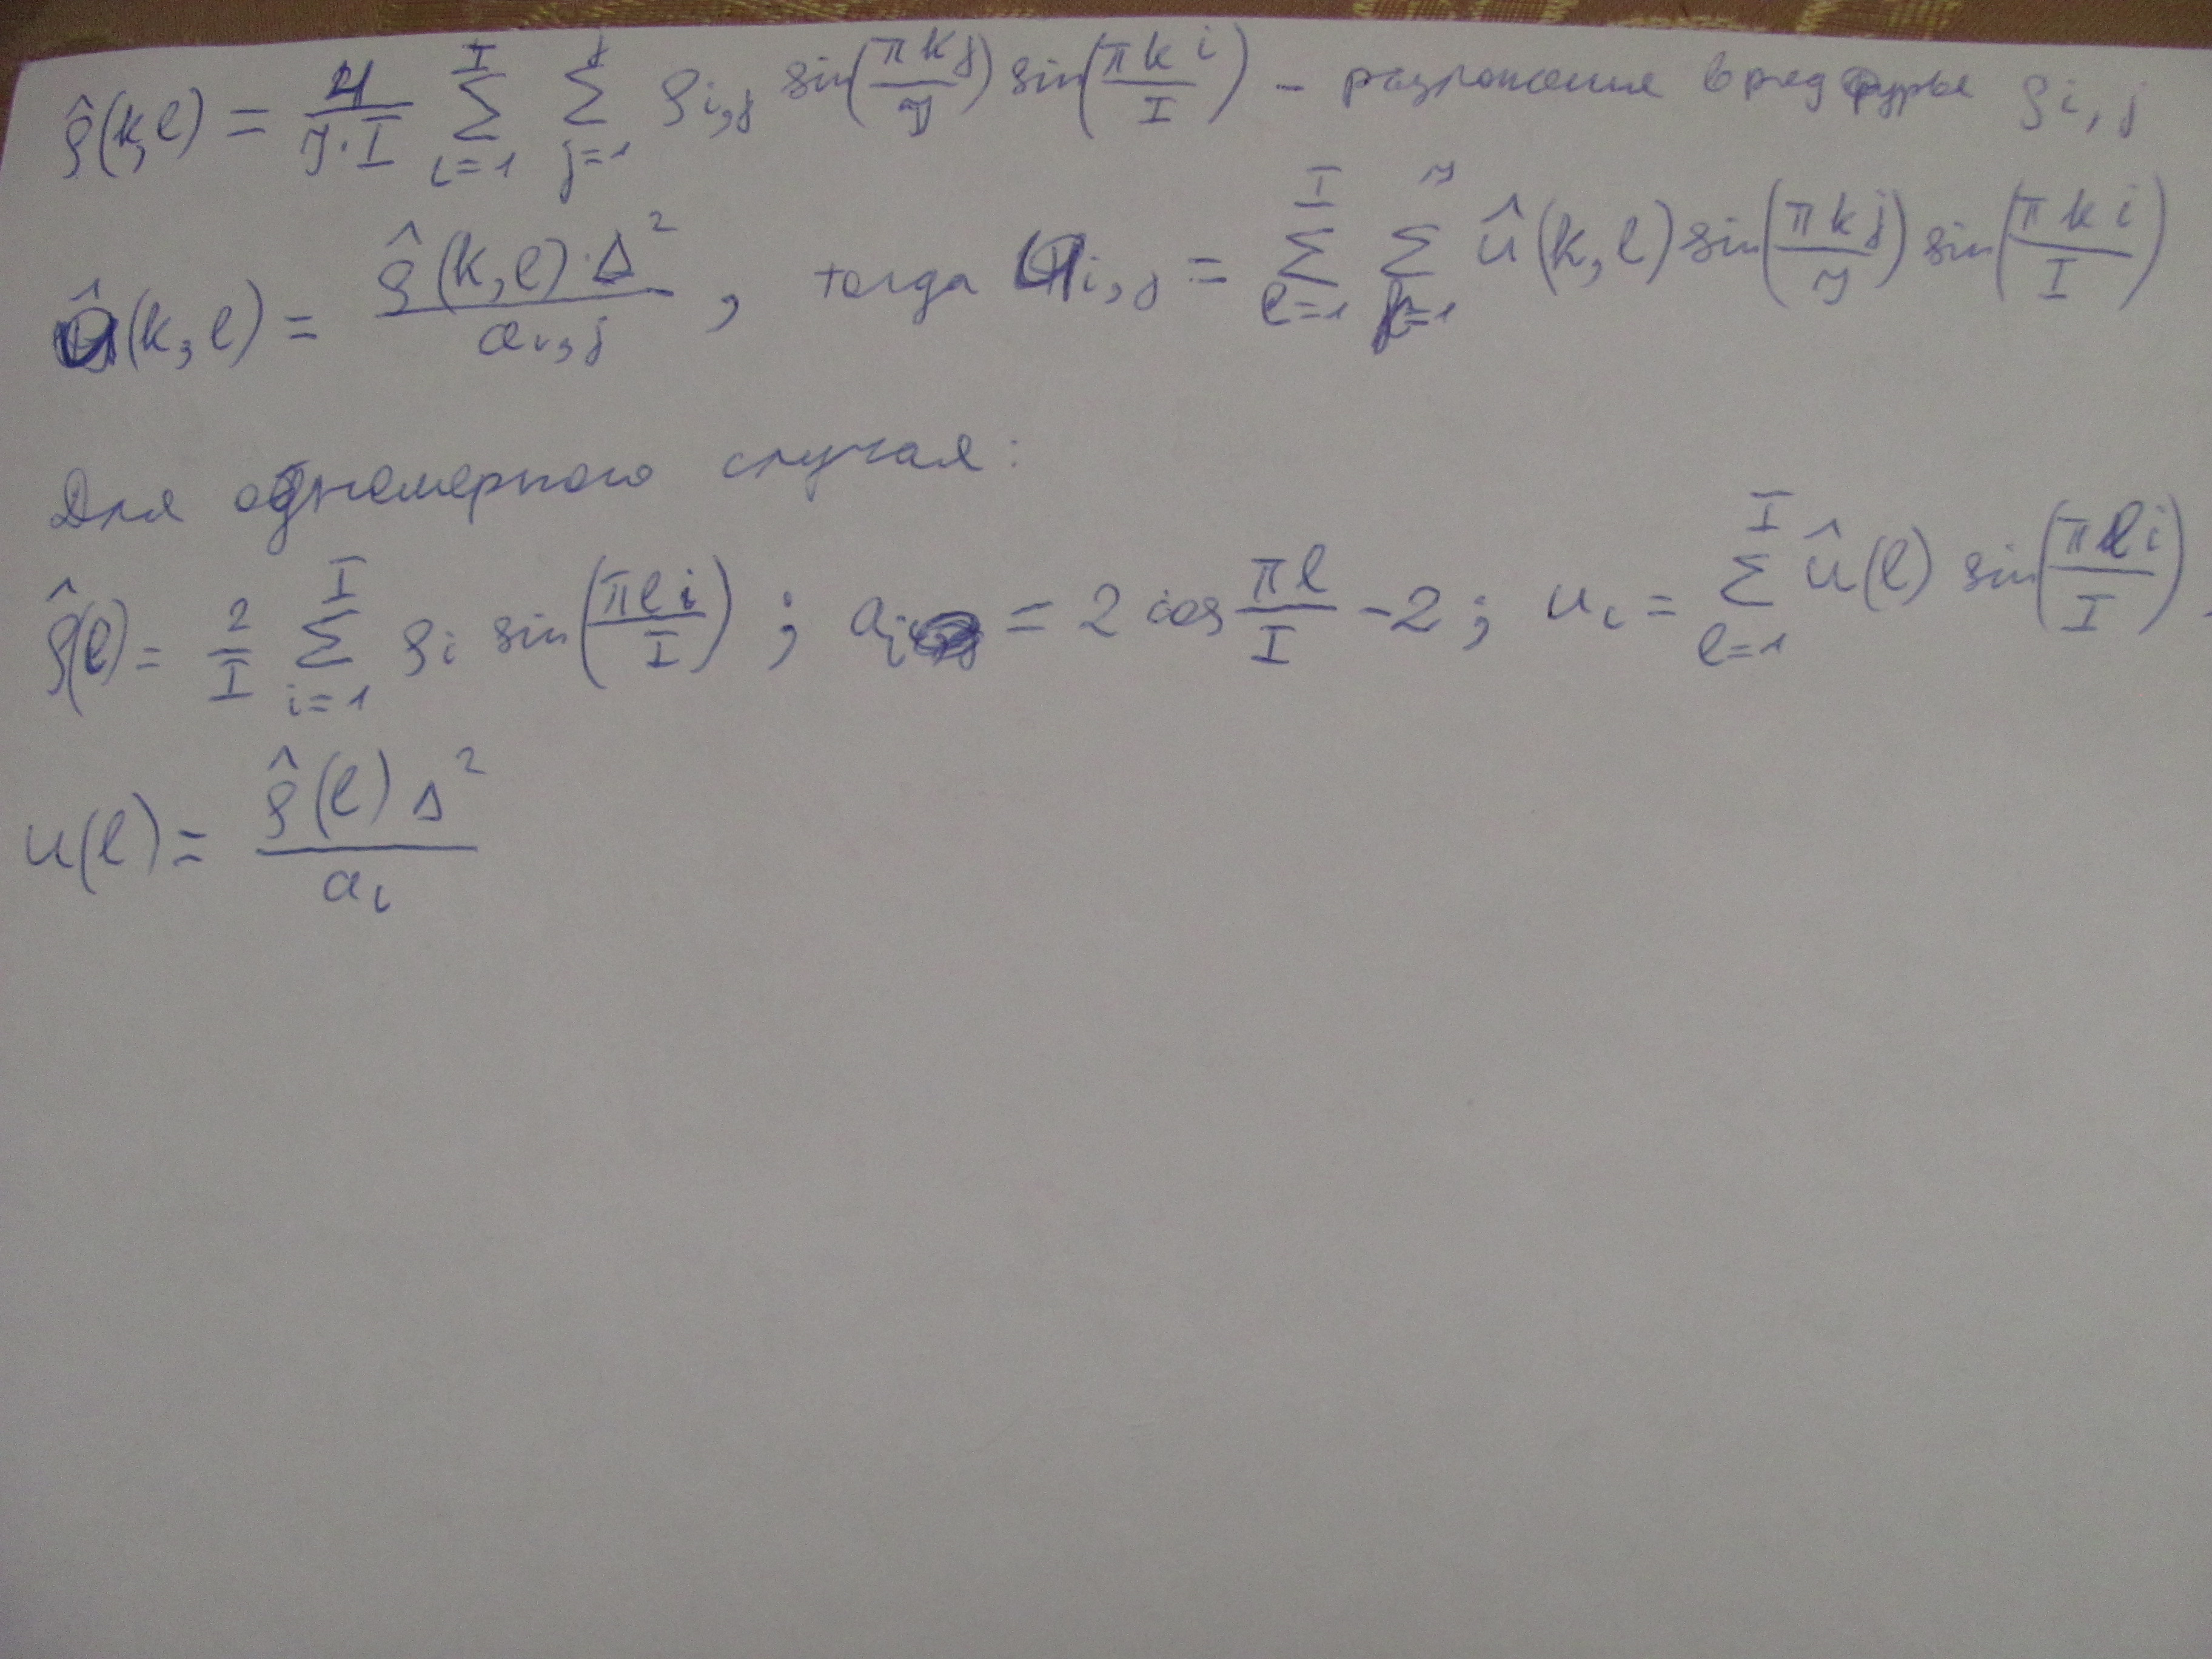 ρ̂(k,l) = 4/(J·I) Σ_{i=1}^{I} Σ_{j=1}^{J} ρ_{i,j} sin(πkj/J) sin(πki/I) – разложение в ряд Фурье ρ_{i,j}
û(k,l) = ρ̂(k,l)·Δ²/a_{i,j} , тогда u_{i,j} = Σ_{l=1}^{I} Σ_{k=1}^{J} û(k,l) sin(πkj/J) sin(πki/I)
Для одномерного случая:
ρ̂(l) = 2/I Σ_{i=1}^{I} ρ_i sin(πli/I) ; a_i = 2 cos πl/I − 2 ; u_i = Σ_{l=1}^{I} û(l) sin(πli/I).
u(l) = ρ̂(l) Δ²/a_i